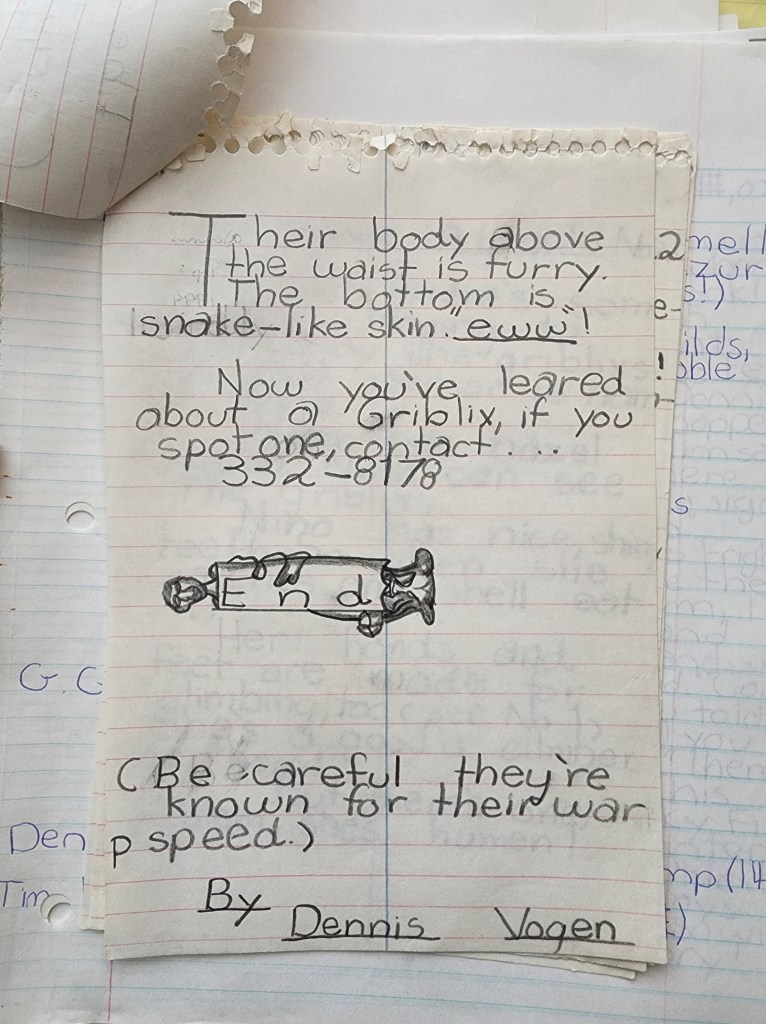 Their body above
the waist is furry.
The bottom is
snake-like skin. "eww"!
Now you've leared
about a Griblix, if you
spot one, contact....
332-8178
End
(Be careful they're
known for their war
p speed.)
By Dennis Vogen
2
e-
!
mell
s!)
ilds,
s
G.C
Den
Tim
mp (14